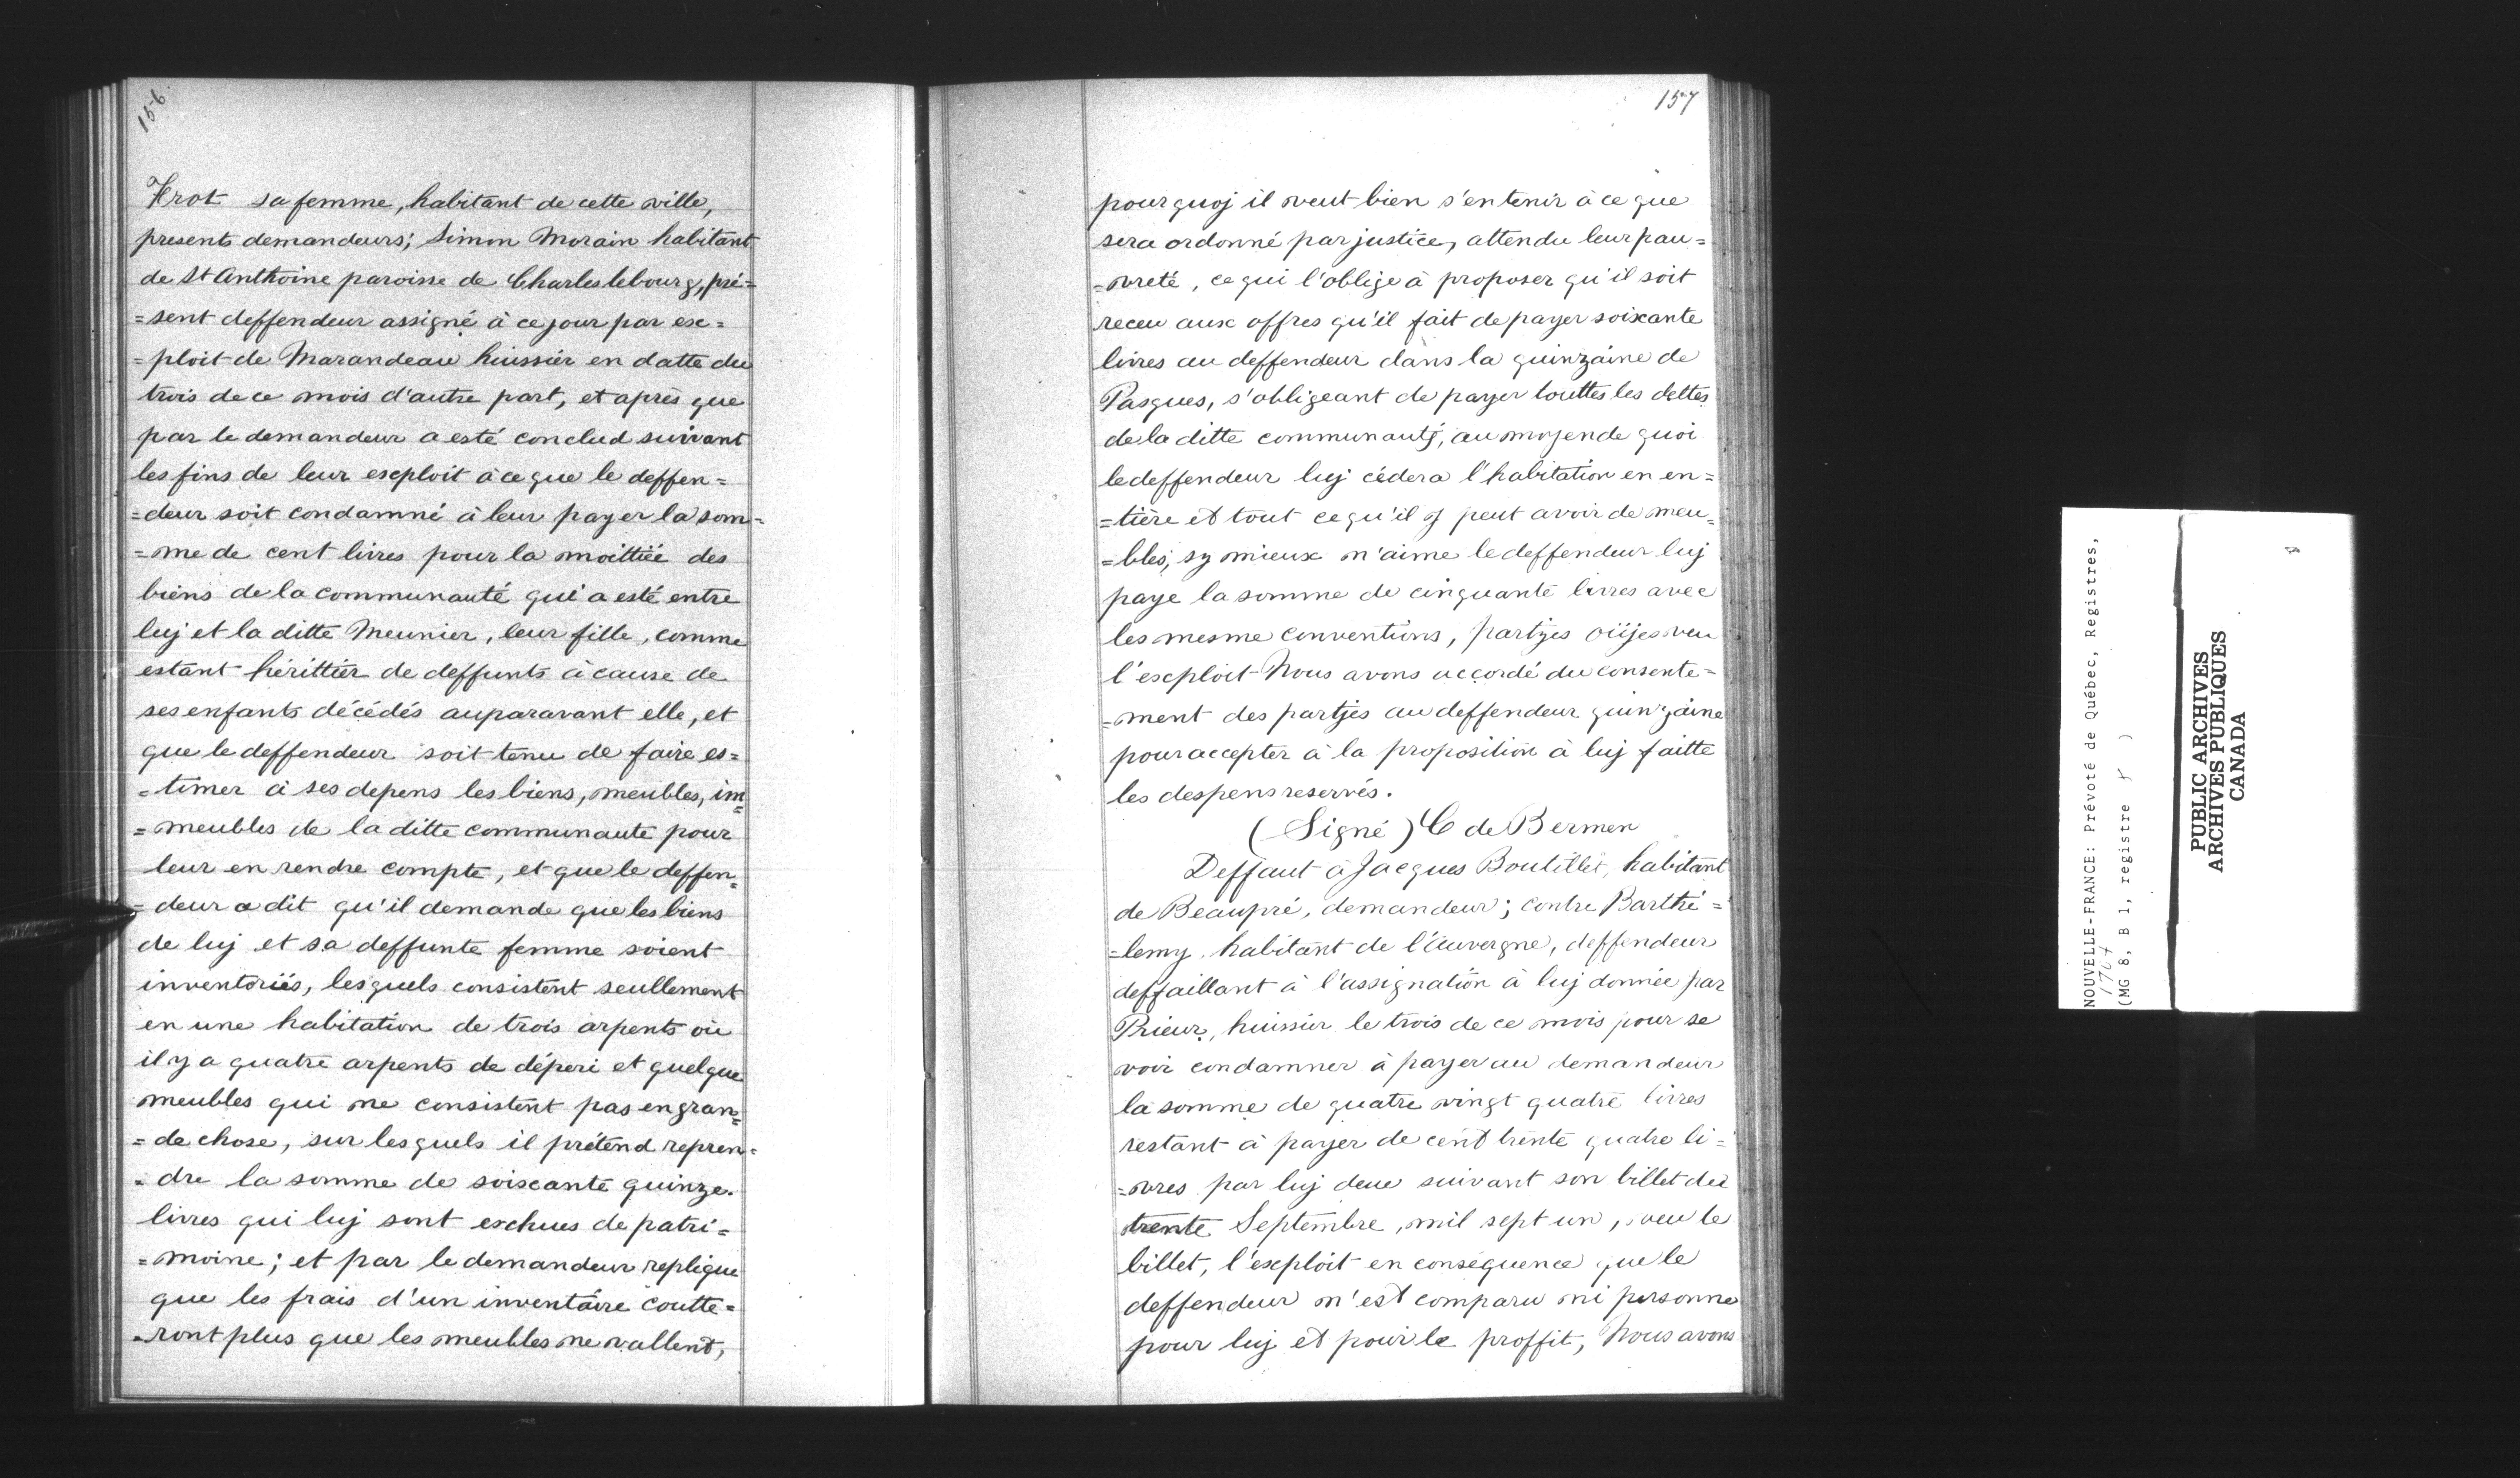 156
Hrot sa femme, habitant de cette ville,
presents demandeurs; Simon Morain habitant
de St Anthoine paroisse de Charleslebourg, pré=
=sent deffendeur assigné à ce jour par ex=
=ploit de Marandeau huissier en datte du
trois de ce mois d'autre part, et après que
par le demandeur a esté conclud suivant
les fins de leur exploit à ce que le deffen=
=deur soit condamné à leur payer la som=
=me de cent livres pour la moittiée des
biens de la communauté qui a esté entre
luj et la ditte Meunier, leur fille, comme
estant hérittier de deffunts à cause de
ses enfants décédés auparavant elle, et
que le deffendeur soit tenu de faire es=
=timer à ses depens les biens, meubles, im=
=meubles de la ditte communauté pour
leur en rendre compte, et que le deffen=
=deur a dit qu'il demande que les biens
de luj et sa deffunte femme soient
inventoriés, lesquels consistent seullement
en une habitation de trois arpents où
il y a quatre arpents de déperi et quelque
meubles qui ne consistent pas en gran=
=de chose, sur lesquels il prétend repren=
=dre la somme de soixante quinze.
livres qui luj sont eschues de patri=
=moine; et par le demandeur replique
que les frais d'un inventaire coutte=
=ront plus que les meubles ne vallent,
157
pourquoj il veut bien s'en tenir à ce que
sera ordonné par justice, attendu leur pau=
=vreté, ce qui l'oblige à proposer qu'il soit
receu aux offres qu'il fait de payer soixante
livres au deffendeur dans la quinzaine de
Pasques, s'obligeant de payer touttes les dettes
de la ditte communauté, au moyen de quoi
le deffendeur luj cédera l'habitation en en=
=tière et tout ce qu'il y peut avoir de meu=
=bles, sy mieux n'aime le deffendeur luj
paye la somme de cinquante livres avec
les mesme conventions, partjes oüjes veu
l'exploit Nous avons accordé du consente=
=ment des partjes au deffendeur quinzaine
pour accepter à la proposition à luj faitte
les despens reservés.
(Signé) C de Bermen
Deffaut à Jacques Boutillet, habitant
de Beaupré, demandeur; contre Barthé=
=lemy habitant de l'Auvergne, deffendeur
deffaillant à l'assignation à luj donnée par
Prieur, huissier le trois de ce mois pour se
voir condamner à payer au demandeur
la somme de quatre vingt quatre livres
restant à payer de cent trente quatre li=
=vres par luj deue suivant son billet du
trente Septembre, mil sept un, veu le
billet, l'exploit en conséquence que le
deffendeur n'est comparu ni personne
pour luj et pour le proffit, Nous avons
NOUVELLE-FRANCE: Prévoté de Québec, Registres,
1707
(MG 8, B 1, registre )
PUBLIC ARCHIVES
ARCHIVES PUBLIQUES
CANADA